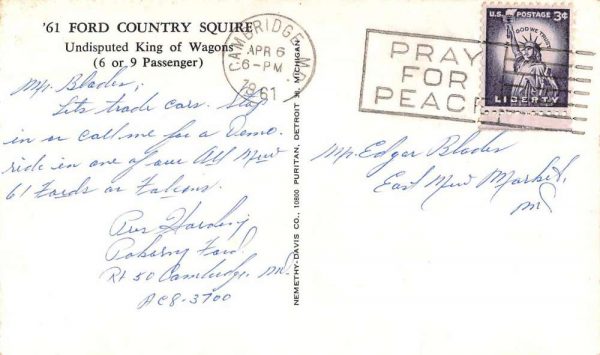 '61 FORD COUNTRY SQUIRE
Undisputed King of Wagons
(6 or 9 Passenger)
Mr. Blades;
Lets trade cars. Stop
in or call me for a Demo.
ride in one of our All New
61 Fords or Falcons.
Harding
Pokorny Ford
Rt 50 Cambridge, Md.
AC8-3700
NEMETHY-DAVIS CO., 10800 PURITAN, DETROIT MICHIGAN
CAMBRIDGE, M
APR 6
6-PM
1961
PRAY
FOR
PEACE
U.S. POSTAGE 3¢
IN GOD WE TRUST
LIBERTY
Mr. Edgar Blades
East New Market,
Md